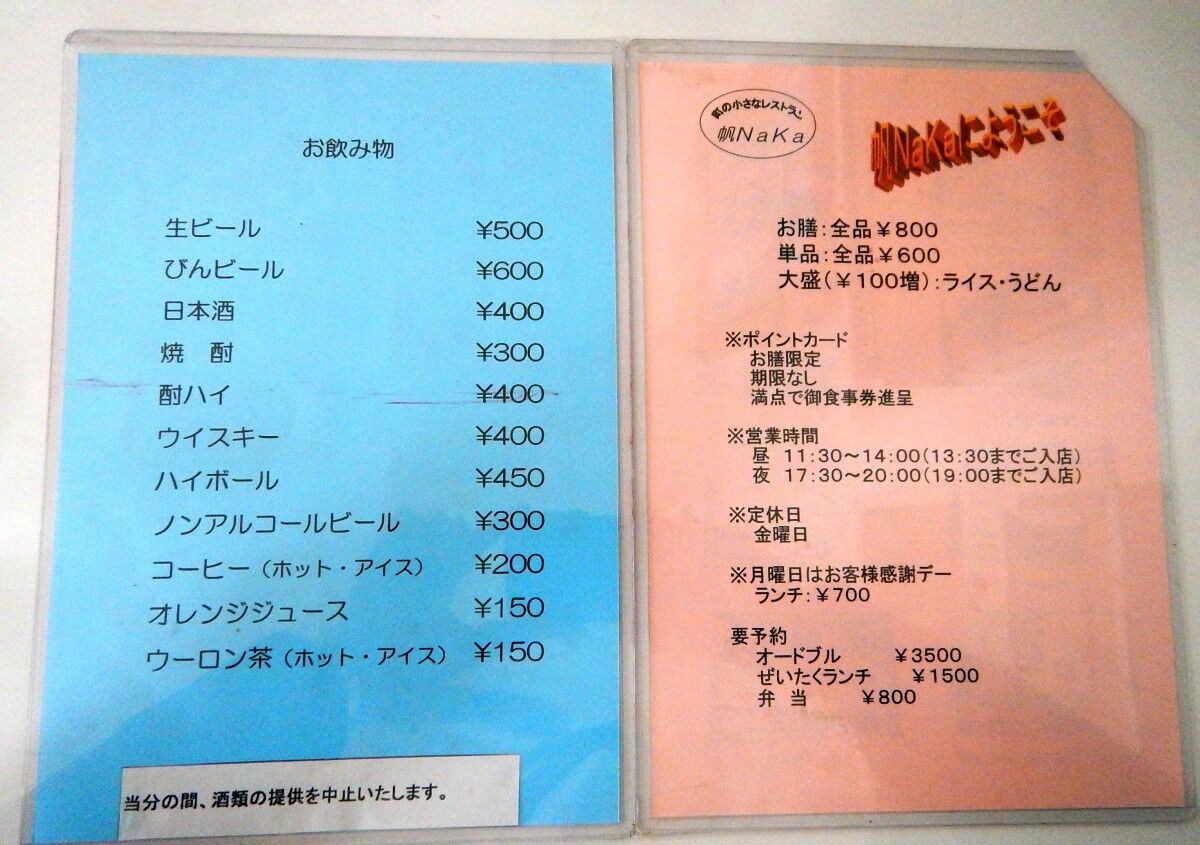 お飲み物
生ビール ¥500
びんビール ¥600
日本酒 ¥400
焼　酎 ¥300
酎ハイ ¥400
ウイスキー ¥400
ハイボール ¥450
ノンアルコールビール ¥300
コーヒー（ホット・アイス） ¥200
オレンジジュース ¥150
ウーロン茶（ホット・アイス） ¥150
当分の間、酒類の提供を中止いたします。
町の小さなレストラン
帆NaKa
帆NaKaにようこそ
お膳：全品￥800
単品：全品￥600
大盛（￥100増）：ライス・うどん
※ポイントカード
お膳限定
期限なし
満点で御食事券進呈
※営業時間
昼　11:30～14:00（13:30までご入店）
夜　17:30～20:00（19:00までご入店）
※定休日
金曜日
※月曜日はお客様感謝デー
ランチ：￥700
要予約
オードブル　￥3500
ぜいたくランチ　￥1500
弁　当　￥800